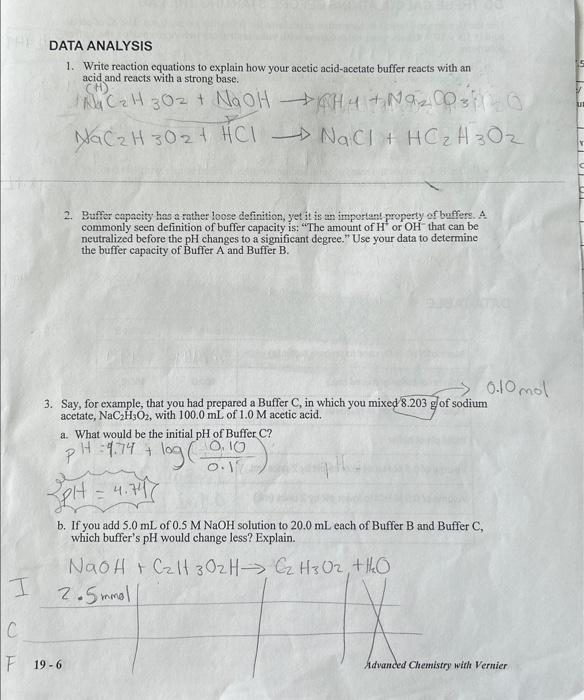 DATA ANALYSIS
1. Write reaction equations to explain how your acetic acid-acetate buffer reacts with an
acid and reacts with a strong base.
(H)
NaC2H3O2 + NaOH → CH4 + Na2CO3
NaC2H3O2 + HCl → NaCl + HC2H3O2
2. Buffer capacity has a rather loose definition, yet it is an important property of buffers. A
commonly seen definition of buffer capacity is: “The amount of H⁺ or OH⁻ that can be
neutralized before the pH changes to a significant degree.” Use your data to determine
the buffer capacity of Buffer A and Buffer B.
→ 0.10 mol
3. Say, for example, that you had prepared a Buffer C, in which you mixed 8.203 g of sodium
acetate, NaC₂H₃O₂, with 100.0 mL of 1.0 M acetic acid.
a. What would be the initial pH of Buffer C?
pH = 4.74 + log(0.10
pH = 4.74
b. If you add 5.0 mL of 0.5 M NaOH solution to 20.0 mL each of Buffer B and Buffer C,
which buffer's pH would change less? Explain.
NaOH + C2H3O2H → C2H3O2 + H2O
I 2.5mmol
C
F 19 - 6 Advanced Chemistry with Vernier